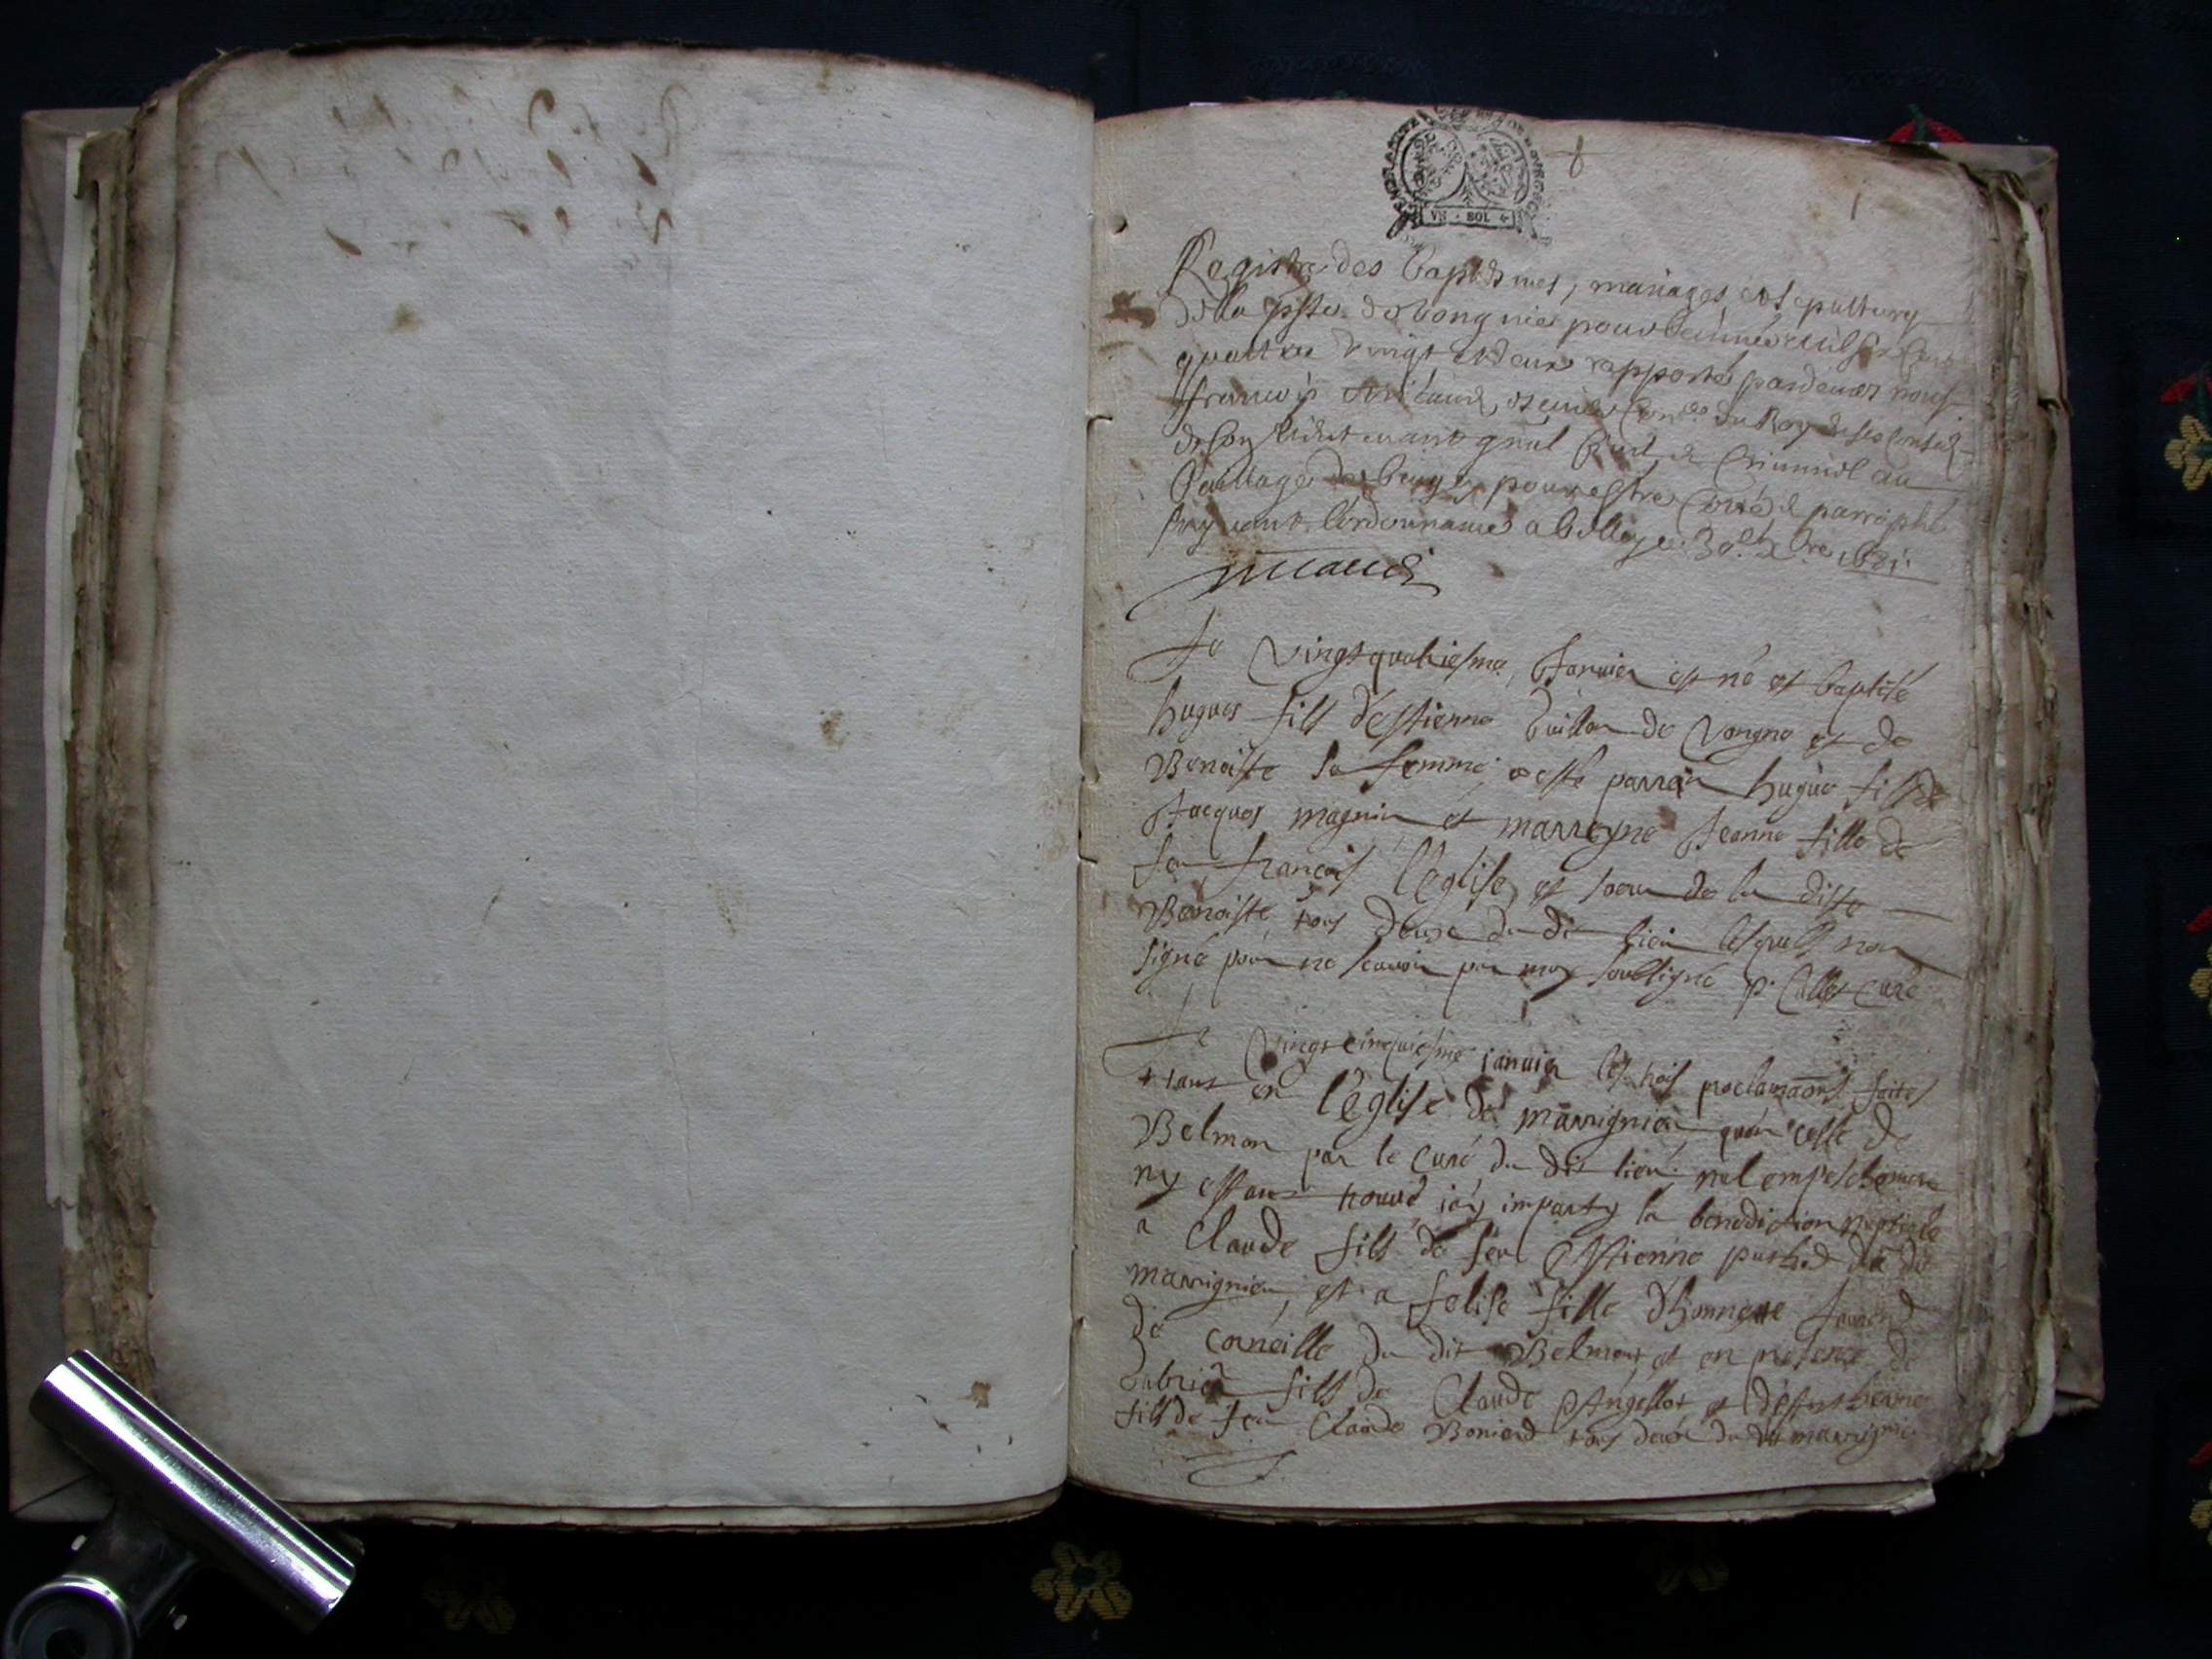 VN · SOL 4
Registre des baptesmes, mariages et sepultures
de la psse de pour l'année mil six cent
quattre vingt et deux rapporté pardevant nous
françois escuier du Roy
de son lieutenant gnal Civil & Criminel au
bailliage de bugey pour estre cotté & parraphé
suyvant l'ordonnance a belley ce 30e xbre 1681
Le vingt quatriesme Januier est né et baptisé
hugues fils d'estienne de Vongne et de
Benoiste sa femme, a esté parrain hugue fils de
Jacques magnin et marreyne Jeanne fille de
feu françois l'eglise, et soeur de la ditte
Benoiste, tous deux du dit lieu lesquels non
signé pour ne scauoir par moy soubsigné p. Curé
Le vingt cinquiesme januier les trois proclamaõns faites
tant en l'eglise de marrignieu, qu'en celle de
Belmon par le curé du dit lieu, nul empeschement
ny estant trouué i'ay imparty la benediction nuptiale
a Claude fils de feu Estienne du dit
marrignieu, et a felise fille d'honneste
de corneille du dit Belmont et en presence de
fils de Claude et
fils de feu Claude tous deux du dit marrignieu